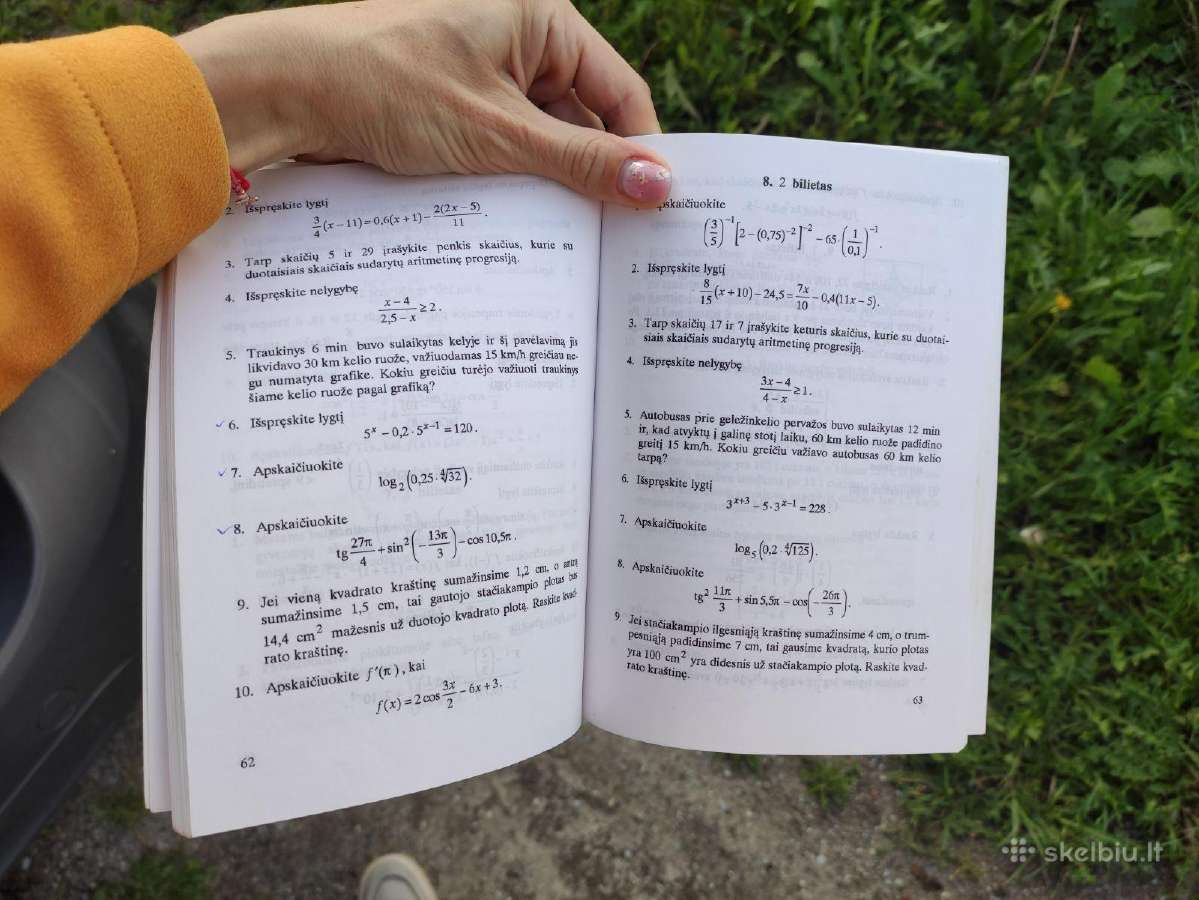 2. Išspręskite lygtį
3/4 (x−11)=0,6(x+1)− 2(2x−5)/11 .
3. Tarp skaičių 5 ir 29 įrašykite penkis skaičius, kurie su
duotaisiais skaičiais sudarytų aritmetinę progresiją.
4. Išspręskite nelygybę
x−4 / 2,5−x ≥ 2 .
5. Traukinys 6 min buvo sulaikytas kelyje ir šį pavėlavimą jis
likvidavo 30 km kelio ruože, važiuodamas 15 km/h greičiau ne-
gu numatyta grafike. Kokiu greičiu turėjo važiuoti traukinys
šiame kelio ruože pagal grafiką?
6. Išspręskite lygtį
5^x − 0,2 · 5^(x−1) = 120 .
7. Apskaičiuokite
log₂(0,25 · ∜32) .
8. Apskaičiuokite
tg 27π/4 + sin²(− 13π/3) − cos 10,5π .
9. Jei vieną kvadrato kraštinę sumažinsime 1,2 cm, o antrą
sumažinsime 1,5 cm, tai gautojo stačiakampio plotas bus
14,4 cm² mažesnis už duotojo kvadrato plotą. Raskite kvad-
rato kraštinę.
10. Apskaičiuokite f′(π), kai
f(x) = 2 cos 3x/2 − 6x + 3.
62
8. 2 bilietas
Apskaičiuokite
(3/5)^−1 [2 − (0,75)^−2]^−2 − 65 · (1/0,1)^−1 .
2. Išspręskite lygtį
8/15 (x+10) − 24,5 = 7x/10 − 0,4(11x−5).
3. Tarp skaičių 17 ir 7 įrašykite keturis skaičius, kurie su duotai-
siais skaičiais sudarytų aritmetinę progresiją.
4. Išspręskite nelygybę
3x−4 / 4−x ≥ 1 .
5. Autobusas prie geležinkelio pervažos buvo sulaikytas 12 min
ir, kad atvyktų į galinę stotį laiku, 60 km kelio ruože padidino
greitį 15 km/h. Kokiu greičiu važiavo autobusas 60 km kelio
tarpą?
6. Išspręskite lygtį
3^(x+3) − 5 · 3^(x−1) = 228 .
7. Apskaičiuokite
log₅(0,2 · ∜125) .
8. Apskaičiuokite
tg² 11π/3 + sin 5,5π − cos(− 26π/3) .
9. Jei stačiakampio ilgesniąją kraštinę sumažinsime 4 cm, o trum-
pesniąją padidinsime 7 cm, tai gausime kvadratą, kurio plotas
yra 100 cm² yra didesnis už stačiakampio plotą. Raskite kvad-
rato kraštinę.
63
skelbiu.lt